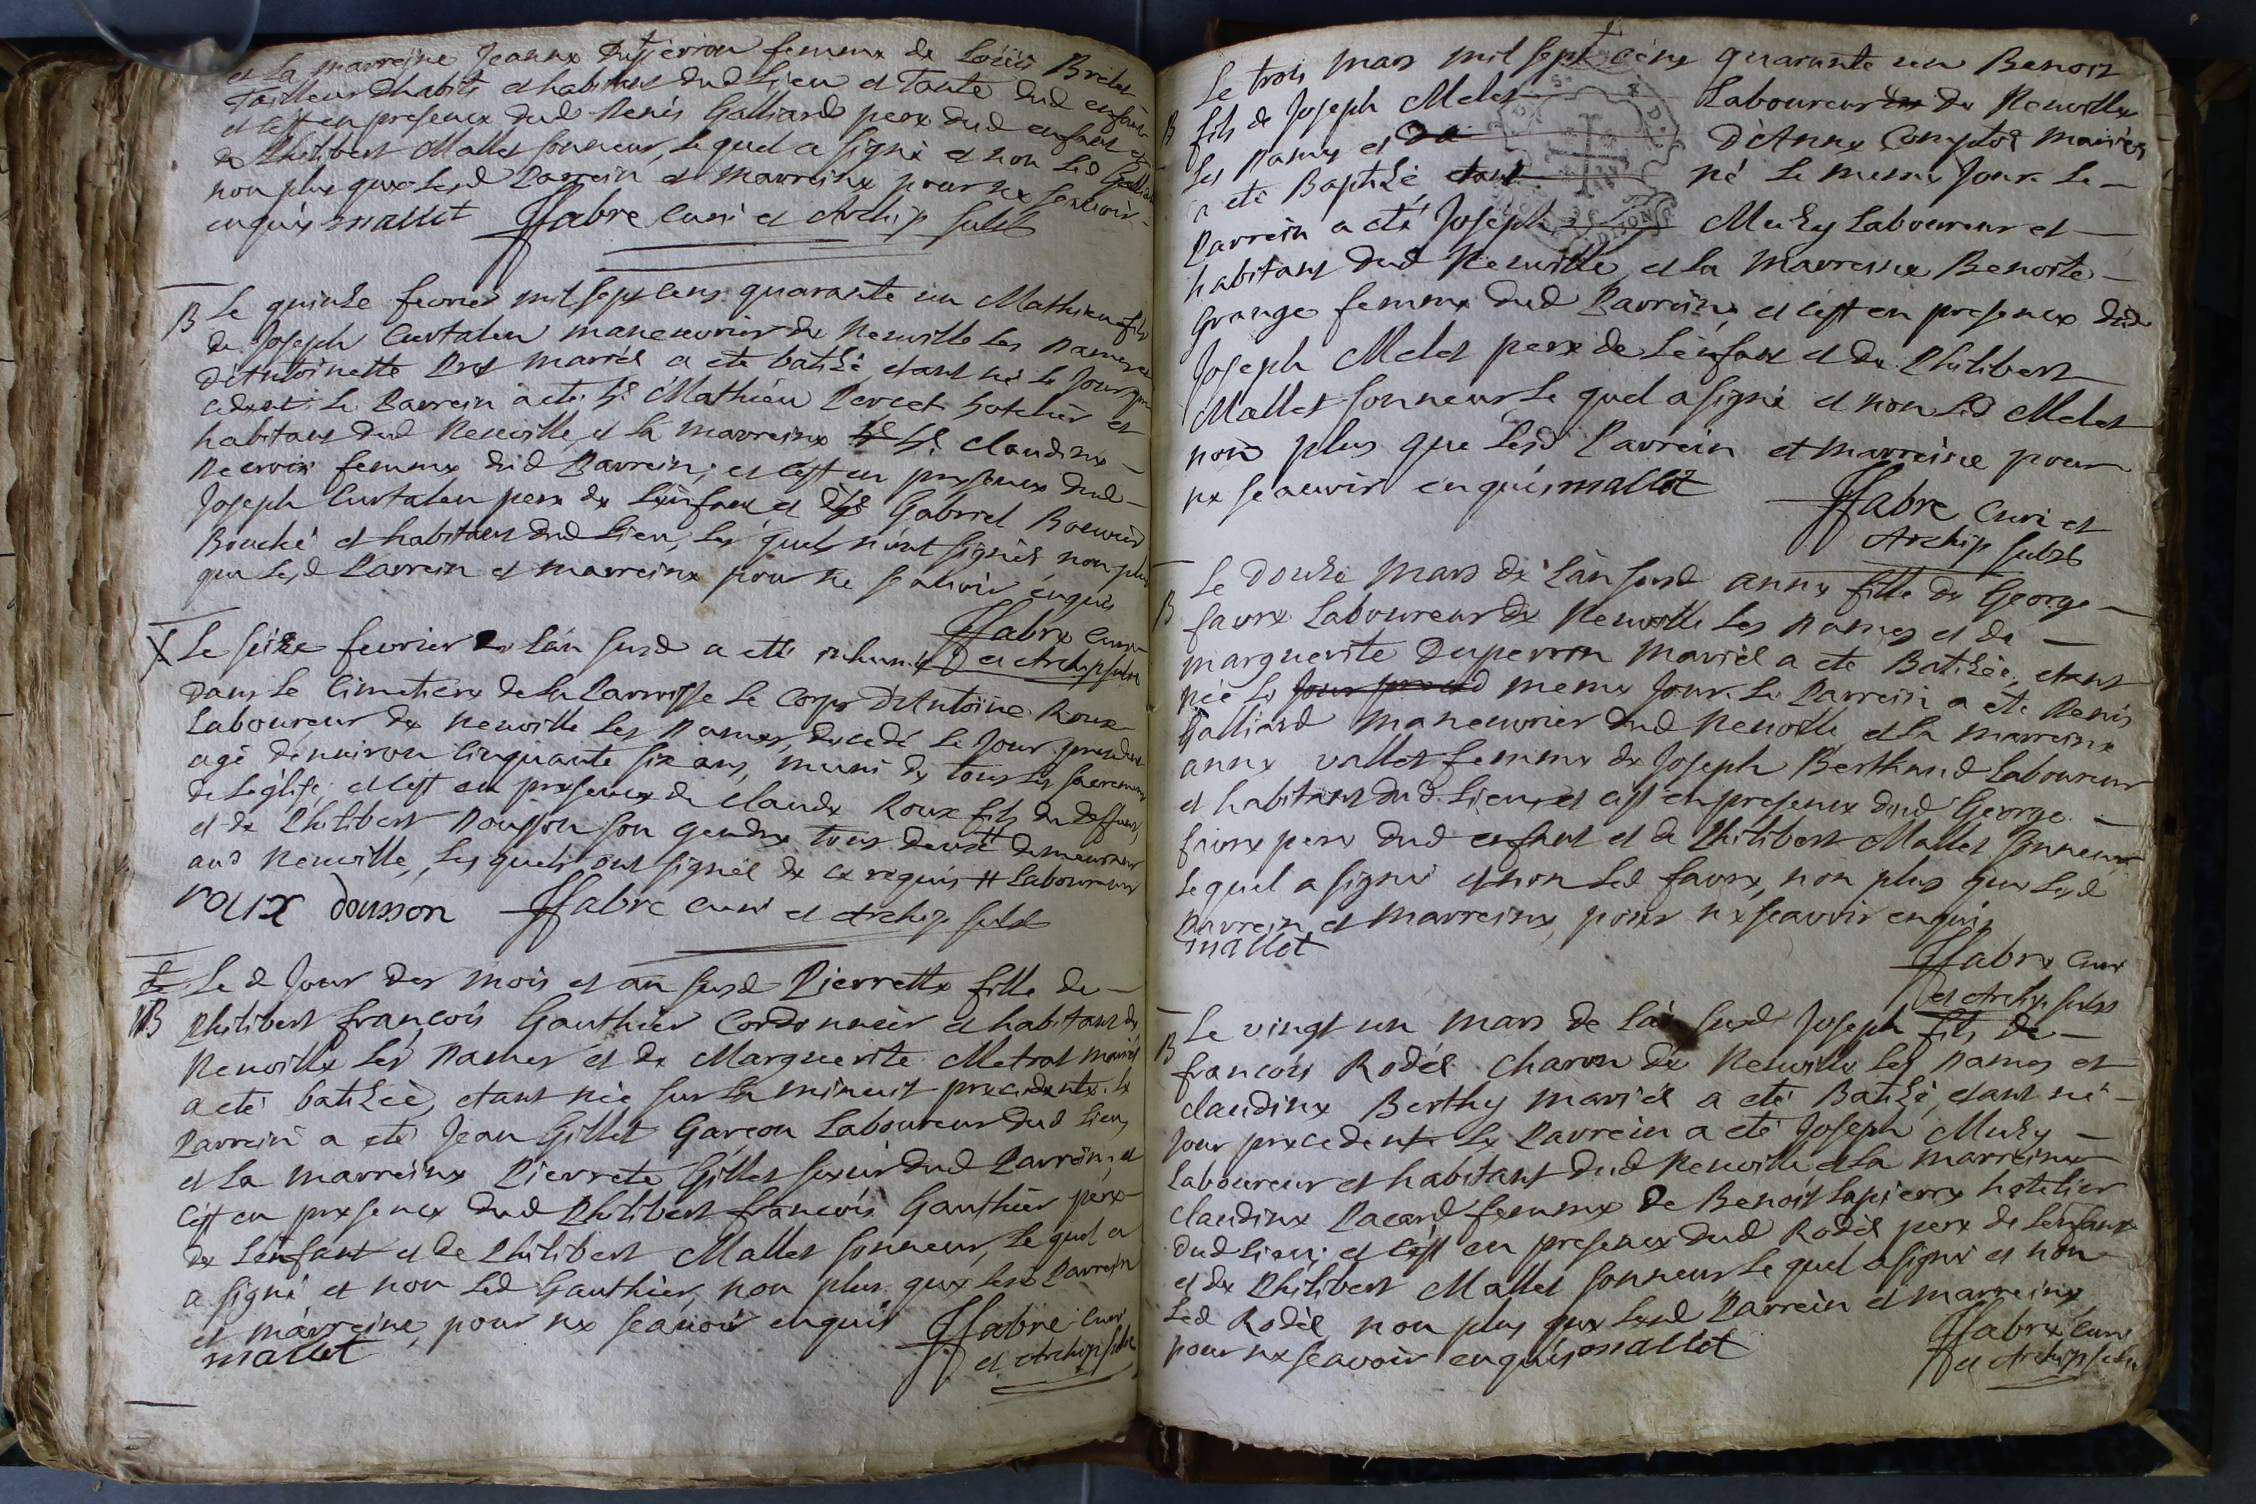 et La marreine Jeanne femme de Loüis Brelet
Tailleur d'habits et habitant dud Lieu et Tante dud enfant
et c'est en presence dud Renés Galliard pere dud enfant et
de Philibert Mallet sonneur, Le quel a signé et non Led
non plus que Lesd Parrein et marreine pour ne sçavoir
enquis mallet Ffabre curé et Archip subst
B Le quinze fevrier mil sept cens quarante un Mathieu fils
de Joseph Curtaleu maneuvrier de Neuville Les Dames et
d'Antoinette mariés a eté batizé, etant né Le Jour pre
cedent Le Parrein a eté Sr Mathieu Percet hotelier et
habitant dud Neuville, et La marreine Claudine
femme dud Parrein; et c'est en presence dud
Joseph Curtaleu pere de L'enfant et Gabriel
Bouché et habitant dud Lieu, Les quels n'ont signés non plus
que Lesd Parrein et marreine pour ne sçavoir enquis
Ffabre curé
et Archip subst
X Le seize fevrier de L'an susd a eté inhumé
dans Le Cimetiere de La Parroisse Le Corps d'Antoine Roux
Laboureur de Neuville Les Dames, decedé Le Jour precedent
agé d'environ Cinquante six ans, muni de tous Les sacremens
de L'église; et c'est en presence de Claude Roux fils du deffunt,
et de Philibert Dousson son gendre tous deux # demeurant
aud Neuville, Les quels ont signés de ce requis # Laboureurs
roux dousson Ffabre curé et Archip subst
Le d Jour des mois et an susd Pierrette fille de
B Philibert françois Gauthier Cordonnier et habitant de
Neuville Les Dames et de Marguerite Metrat mariés
a eté batizée, etant née sur La minuit precedente. Le
Parrein a eté Jean Gillet Garçon Laboureur dud Lieu,
et La marreine Pierrete Gillet soeur dud Parrein; et
c'est en presence dud Philibert françois Gauthier pere
de L'enfant et de Philibert Mallet sonneur, Le quel a
a signé et non Led Gauthier, non plus que Lesd Parrein
et marreine, pour ne sçavoir enquis
mallet Ffabre curé
et Archip subst
Le trois mars mil sept cens quarante un Benoit
B fils de Joseph Melet Laboureur de Neuville
Les Dames et d'Anne Comptot mariés
a eté Baptizé, etant né Le meme Jour. Le
Parrein a eté Joseph Muzy Laboureur et
habitant dud Neuville, et La marreine Benoite
Grange femme dud Parrein, et c'est en presence dud
Joseph Melet pere de L'enfant et de Philibert
Mallet sonneur Le quel a signé et non Led Melet
non plus que Lesd Parrein et marreine pour
ne sçauvoir enquis mallet
Ffabre curé et
Archip subst
Le douze mars de L'an susd anne fille de George
B favre Laboureur de Neuville Les Dames et de
marguerite Duperron mariés a eté Batizée, etant
née Le meme Jour. Le Parrein a eté Renés
Galliard maneuvrier dud Neuville et La marreine
anne vallet femme de Joseph Berthaud Laboureur
et habitant dud Lieu, et c'est en presence dud George
favre pere dud enfant et de Philibert Mallet sonneur,
Le quel a signé et non Led favre, non plus que Lesd
Parrein et marreine, pour ne sçavoir enquis
mallet
Ffabre curé
et Archip subst
Le vingt un mars de L'an susd Joseph fils de
B françois Rodés charon de Neuville Les Dames et
claudine Berthy mariés a eté Batizé, etant né
Jour precedent Le Parrein a eté Joseph Muzy
Laboureur et habitant dud Neuville et La marreine
claudine Pacard femme de Benoit Lapierre hotelier
dud Lieu; et c'est en presence dud Rodés pere de L'enfant
et de Philibert Mallet sonneur Le quel a signé et non
Led Rodés, non plus que Lesd Parrein et marreine
pour ne sçavoir enquis mallet
Ffabre curé
et Archip subst